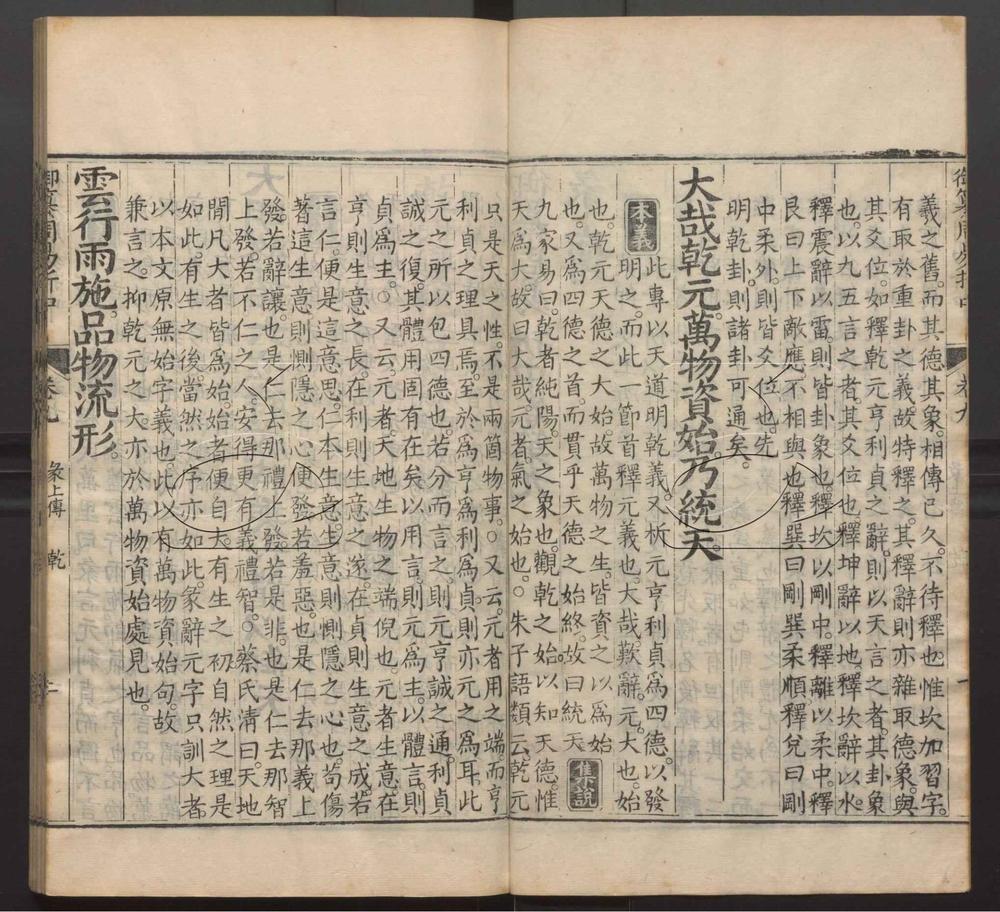 御纂周易折中
卷九
義之舊。而其德其象。相傳已久。不待釋也。惟坎加習字。
有取於重卦之義。故特釋之。其釋辭則亦雜取德象。與
其爻位。如釋乾元亨利貞之辭。則以天言之者。其卦象
也。以九五言之者。其爻位也。釋坤辭以地。釋坎辭以水。
釋震辭以雷。則皆卦象也。釋坎以剛中。釋離以柔中。釋
艮曰上下敵應不相與也。釋巽曰剛巽柔順。釋兌曰剛
中柔外。則皆爻位也。先
明乾卦。則諸卦可通矣。
大哉乾元。萬物資始。乃統天。
本義 此專以天道明乾義。又析元亨利貞為四德。以發
明之。而此一節首釋元義也。大哉歎辭。元。大也。始
也。乾元天德之大始。故萬物之生。皆資之以為始
也。又為四德之首。而貫乎天德之始終。故曰統天 集說
九家易曰。乾者純陽。天之象也。觀乾之始。以知天德。惟
天為大。故曰大哉。元者。氣之始也。○朱子語類云。乾元
只是天之性。不是兩箇物事。○又云。元者用之端。而亨
利貞之理具焉。至於為亨為利為貞。則亦元之為耳。此
元之所以包四德也。若分而言之。則元亨誠之通。利貞
誠之復。其體用固有在矣。以用言。則元為主。以體言。則
貞為主。○又云。元者。天地生物之端倪也。元者生意。在
亨則生意之長。在利則生意之遂。在貞則生意之成。若
言仁。便是這意思。仁本生意。生意則惻隱之心也。苟傷
著這生意。則惻隱之心便發。若羞惡。也是仁去那義上
發。若辭讓。也是仁去那禮上發。若是非。也是仁去那智
上發。若不仁之人。安得更有義禮智。○蔡氏清曰。天地
閒凡大者皆為始。始者便自大。有生之初。自然之理是
如此。有生之後。當然之序亦如此。彖辭元字只訓大者。
以本文原無始字義也。此以有萬物資始句。故
兼言之。抑乾元之大。亦於萬物資始處見也。
雲行雨施。品物流形。
御纂周易折中
卷九
彖上傳 乾